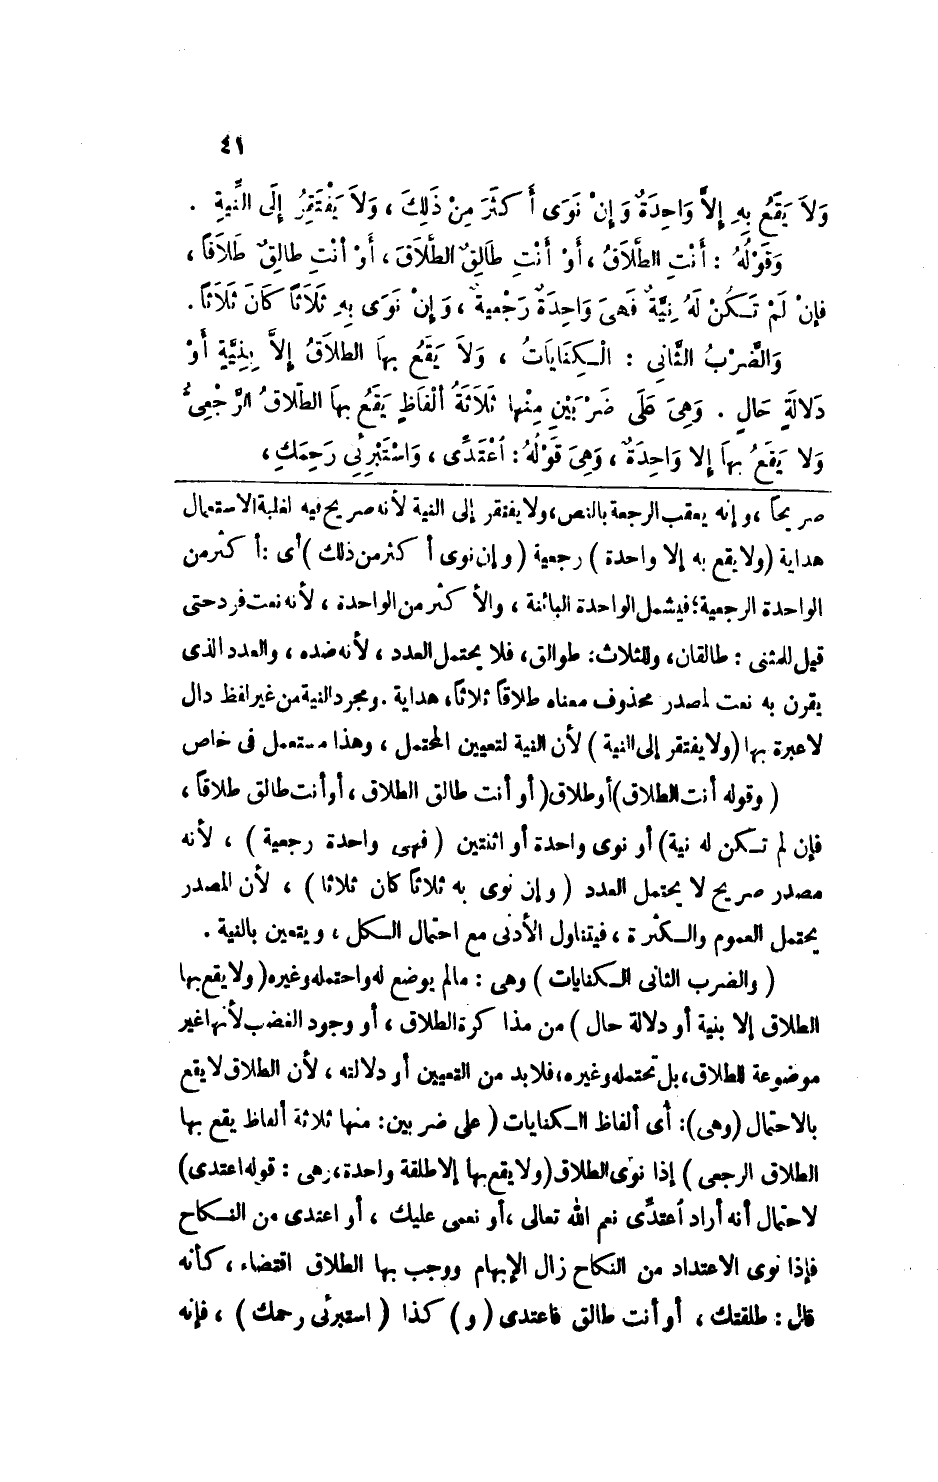 ٤١
وَلاَ يَقَعُ بِهِ إِلاَّ وَاحِدَةٌ وَإِنْ نَوَى أَكثَرَ مِنْ ذَلِكَ ، وَلاَ يَفْتَقِرُ إِلَى النِّيةِ .
وَقَوْلُهُ : أَنْتِ الطَّلاَقُ ، أَوْ أَنْتِ طَالِقٌ الطَّلاَقَ ، أَوْ أَنْتِ طالِقٌ طَلاَقاً ،
فإِنْ لَمْ تَـكُنْ لَهُ نِيَّةٌ فَهِىَ وَاحِدَةٌ رَجْعيةٌ ، وَإِنْ نَوَى بِهِ ثَلاَثاً كَانَ ثَلاَثاً .
وَالضَّرْبُ الثَّانِى : الْـكِنَايَاتُ ، وَلاَ يَقَعُ بهَا الطلاَقُ إِلاَّ بِنِيَّةٍ أَوْ
دَلالَةِ حَالٍ . وَهِىَ عَلَى ضَرْبَيْنِ مِنْها ثَلاَثَةُ أَلْفَاظٍ يَقَعُ بهَا الطّلاقُ الرَّجْعِىُّ
وَلا يَقَعُ بهَا إلا وَاحِدَةٌ ، وَهِىَ قَوْلُهُ : اعْتَدِّى ، وَاسْتَبْرِئِى رَحِمَكِ ،
صريحاً ، وإنه يعقب الرجعة بالنص، ولا يفتقر إلى النية لأنه صريح فيه لغلبة الاستعمال
هداية (ولا يقع به إلا واحدة ) رجعية ( وإن نوى أكثر من ذلك ) أى : أكثر من
الواحدة الرجعية؛ فيشمل الواحدة البائنة ، والأكثر من الواحدة ، لأنه نعت فرد حتى
قيل للمثنى : طالقان، وللثلاث: طوالق، فلا يحتمل العدد ، لأنه ضده ، والعدد الذى
يقرن به نعت لمصدر محذوف معناه طلاقاً ثلاثاً، هداية . ومجرد النية من غير لفظ دال
لا عبرة بها (ولا يفتقر إلى النية ) لأن النية لتعيين المحتمل ، وهذا مستعمل فى خاص
( وقوله أنت الطلاق) أو طلاق( أو أنت طالق الطلاق ، أو أنت طالق طلاقاً ،
فإن لم تـكن له نية) أو نوى واحدة أو اثنتين ( فهى واحدة رجعية ) ، لأنه
مصدر صريح لا يحتمل العدد ( وإن نوى به ثلاثاً كان ثلاثا ) ، لأن المصدر
يحتمل العموم والـكثرة ، فيتناول الأدنى مع احتمال الـكل ، ويتعين بالنية .
( والضرب الثانى الـكنايات ) وهى : مالم يوضع له واحتمله وغيره( ولا يقع بها
الطلاق إلا بنية أو دلالة حال ) من مذاكرة الطلاق ، أو وجود الغضب لأنها غير
موضوعة للطلاق، بل تحتمله وغيره، فلا بد من التعيين أو دلالته ، لأن الطلاق لا يقع
بالاحتمال (وهى): أى ألفاظ الـكنايات ( على ضربين: منها ثلاثة ألفاظ يقع بها
الطلاق الرجعى ) إذا نوى الطلاق (ولا يقع بها إلا طلقة واحدة، وهى : قوله اعتدى)
لاحتمال أنه أراد اعتدِّى نعم الله تعالى ، أو نعمى عليك ، أو اعتدى من النـكاح
فإذا نوى الاعتداد من النكاح زال الإبهام ووجب بها الطلاق اقتضاء ، كأنه
قال : طلقتك ، أو أنت طالق فاعتدى ( و ) كذا ( استبرئى رحمك ) ، فإنه